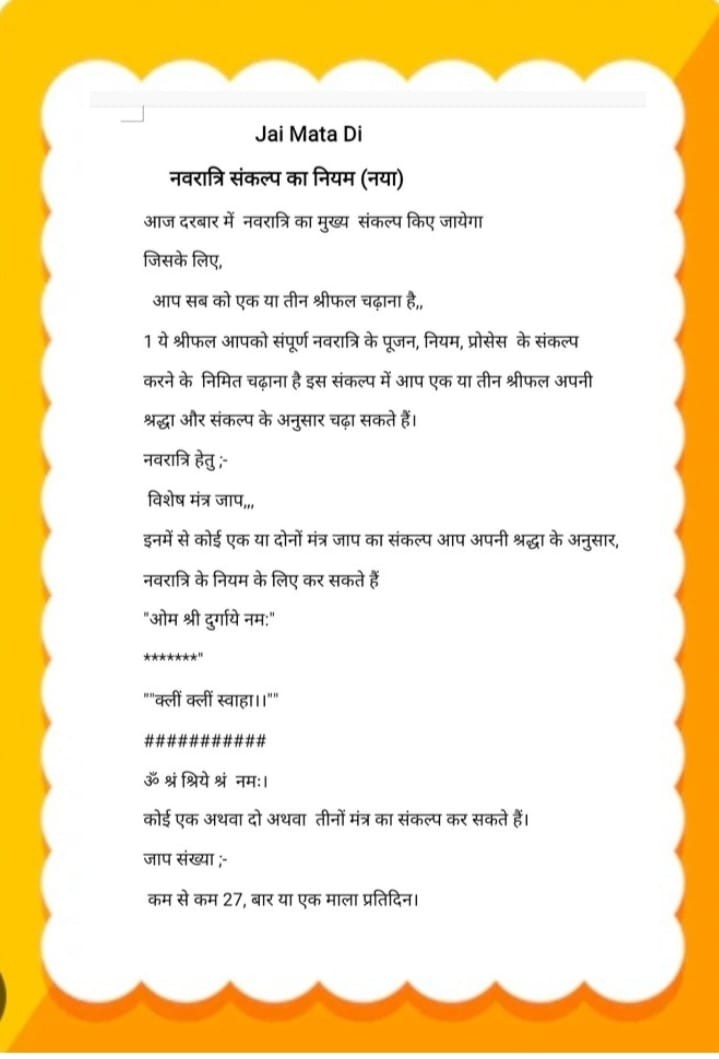 Jai Mata Di
नवरात्रि संकल्प का नियम (नया)
आज दरबार में नवरात्रि का मुख्य संकल्प किए जायेगा
जिसके लिए,
आप सब को एक या तीन श्रीफल चढ़ाना है,,
1 ये श्रीफल आपको संपूर्ण नवरात्रि के पूजन, नियम, प्रोसेस के संकल्प
करने के निमित चढ़ाना है इस संकल्प में आप एक या तीन श्रीफल अपनी
श्रद्धा और संकल्प के अनुसार चढ़ा सकते हैं।
नवरात्रि हेतु ;-
विशेष मंत्र जाप,,,
इनमें से कोई एक या दोनों मंत्र जाप का संकल्प आप अपनी श्रद्धा के अनुसार,
नवरात्रि के नियम के लिए कर सकते हैं
"ओम श्री दुर्गाये नम:"
*******"
""क्लीं क्लीं स्वाहा।।""
###########
ॐ श्रं श्रिये श्रं नमः।
कोई एक अथवा दो अथवा तीनों मंत्र का संकल्प कर सकते हैं।
जाप संख्या ;-
कम से कम 27, बार या एक माला प्रतिदिन।